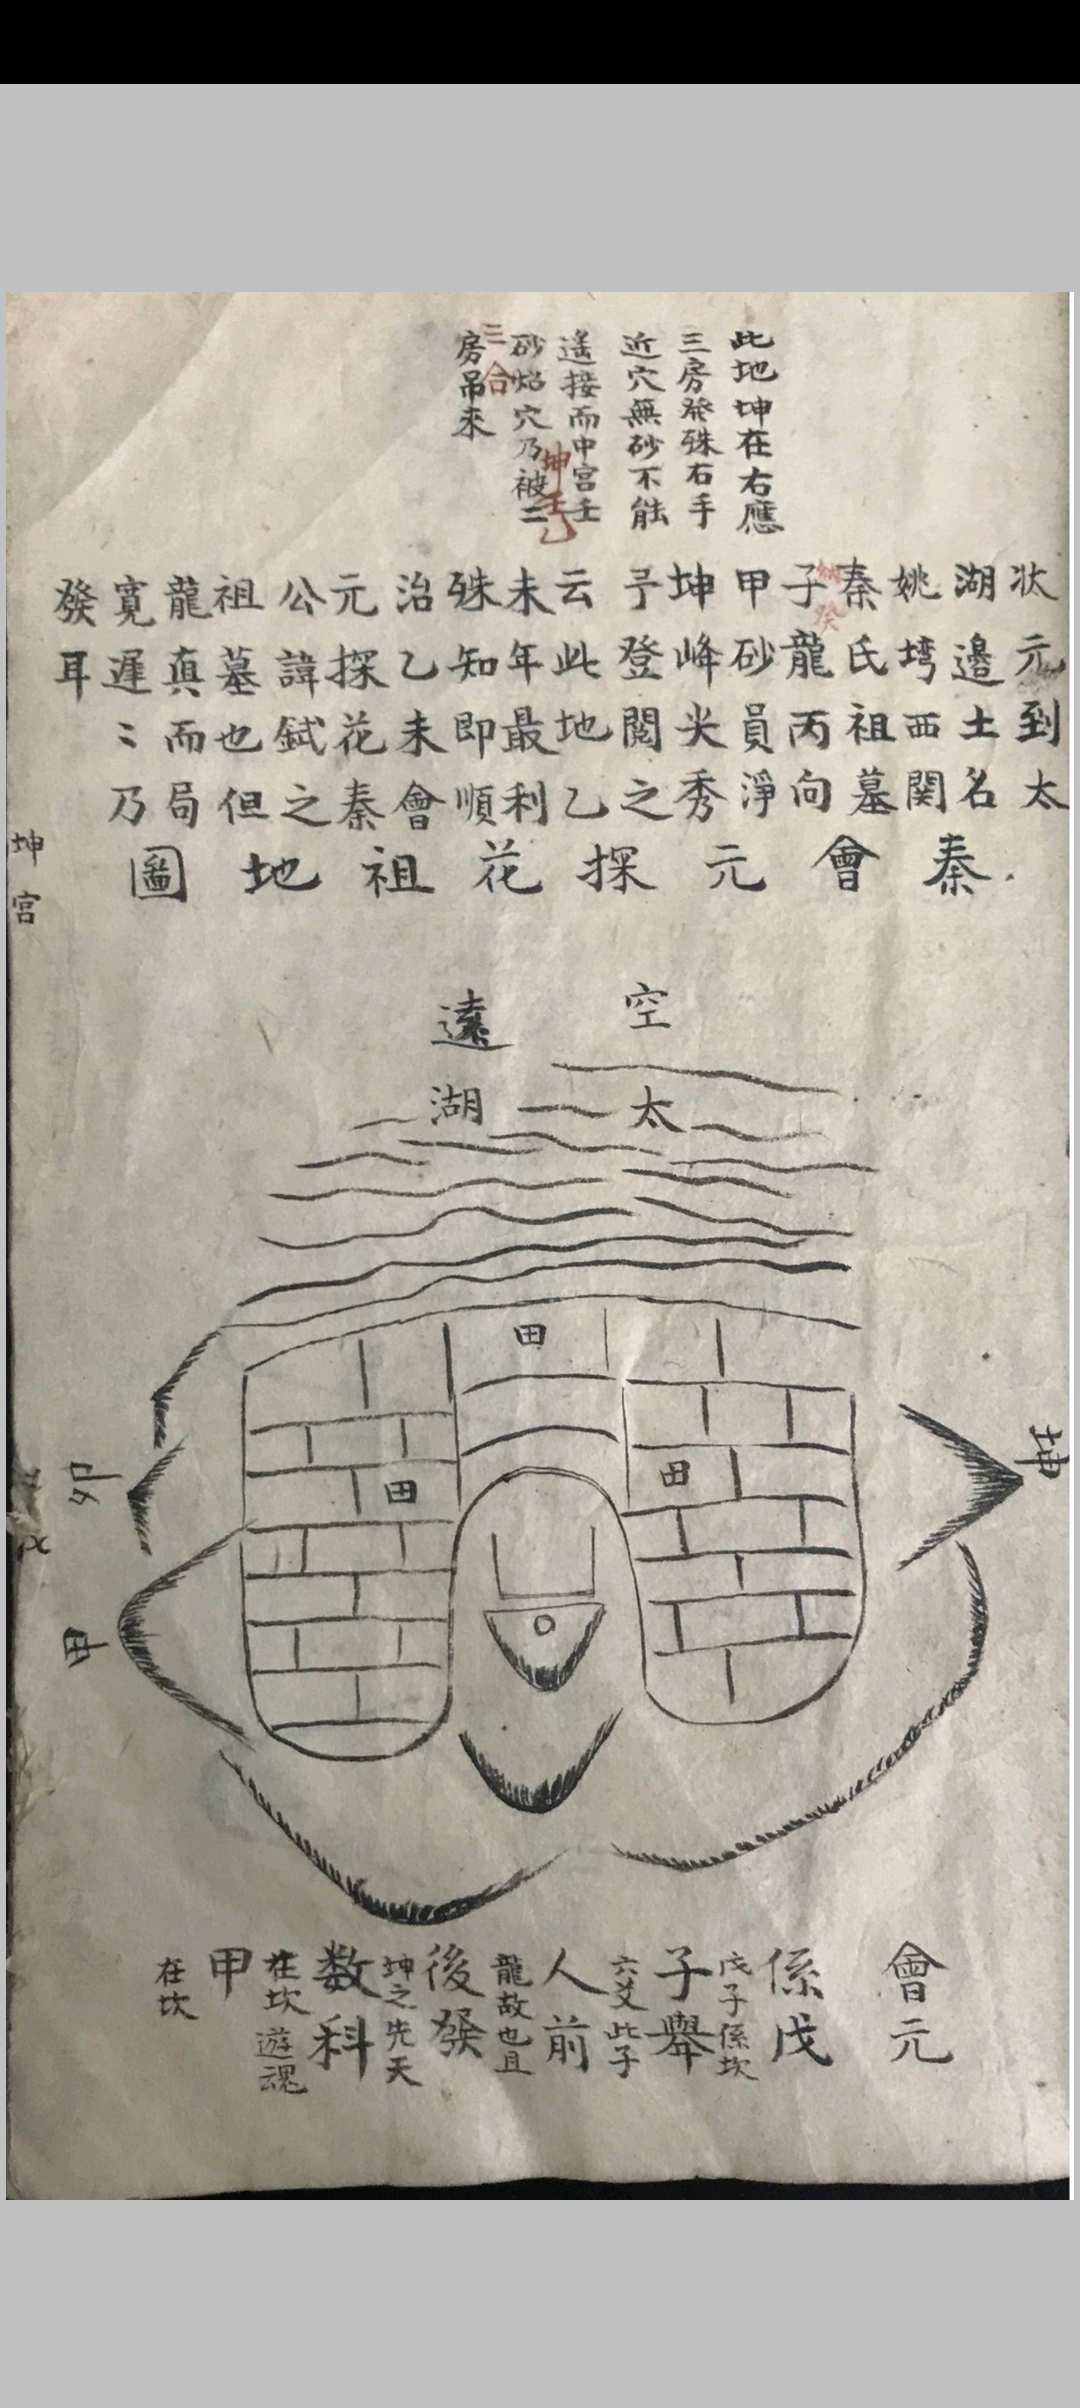 此地坤在右應
三房發殊右手
近穴無砂不能
遥接而中宮壬
砂焰穴乃被二
房吊來
坤壬乙
三合
状元到太
湖邉土名
姚塆西関
秦氏祖墓
癸
子龍丙向
甲砂員淨
坤峰尖秀
予登閲之
云此地乙
未年最利
殊知即順
治乙未會
元探花秦
公諱鉽之
祖墓也但
龍真而局
寛遲〻乃
發耳
秦會元探花祖地圖
坤宮
空遠
太湖
田
田
田
坤
甲
會元
係戊
戊子係坎
子舉
六爻此子
人前
龍故也且
後發
坤之先天
数科
在坎遊魂
甲
在坎